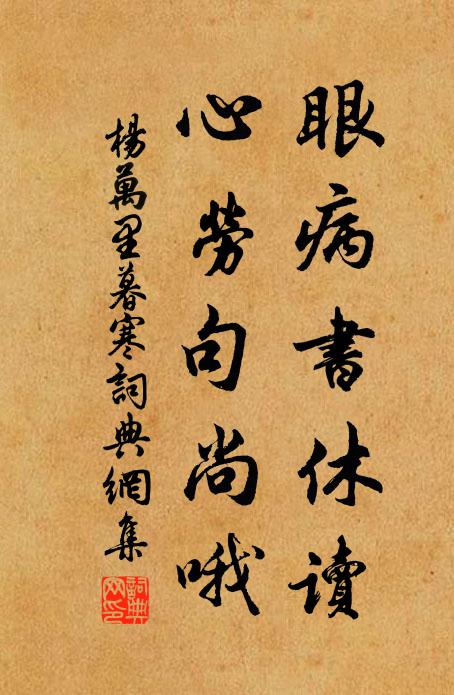 眼病書休讀
心勞句尚哦
楊萬里暮寒詞典網集
詞典网印